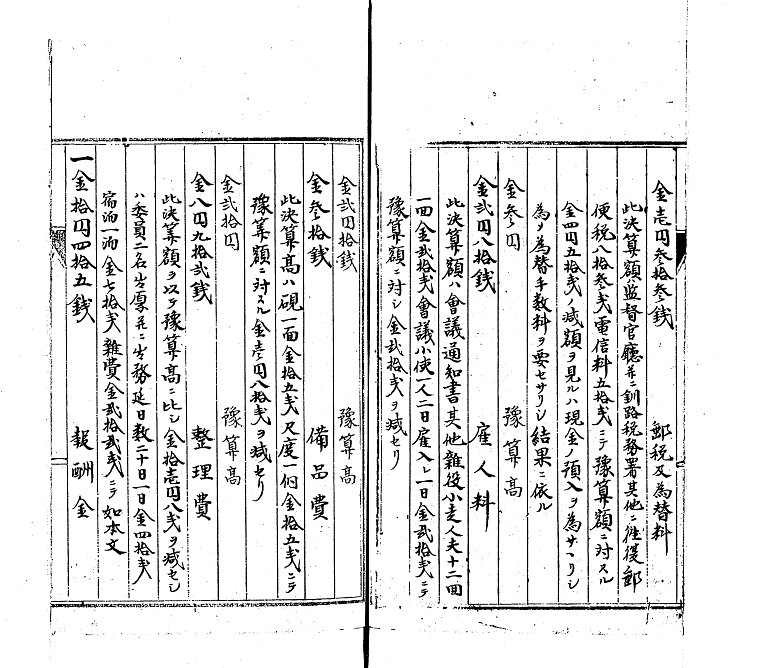 金壱円参拾参銭 郵税及為替料
此決算額監督官廳並ニ釧路税務署其他ニ往復郵
便税八拾参戋電信料五拾戋ニテ豫算額ニ対スル
金四円五拾戋ノ減額ヲ見ルハ現金ノ預入ヲ為サヽリシ
為メ為替手数料ヲ要セサリシ結果ニ依ル
金参円 豫算高
金弐円八拾銭 雇人料
此決算額ハ會議通知書其他雑役小走人夫十二回
一回金弐拾戋會議小使一人二日雇入レ一日金弐拾戋ニテ
豫算額ニ対シ金弐拾戋ヲ減セリ
金弐円拾銭 豫算高
金参拾銭 備品費
此決算高ハ硯一面金拾五戋尺度一個金拾五戋ニテ
豫算額ニ対スル金壱円八拾戋ヲ減セリ
金弐拾円 豫算高
金八円九拾弐銭 整理費
此決算額ヲ以テ豫算高ニ比シ金拾壱円八戋ヲ減セシ
ハ委員二名出厚並ニ出務延日数二十日一日金四拾戋
宿泊一泊金七拾戋雑費金弐拾弐戋ニテ如本文
一金拾円四拾五銭 報酬金